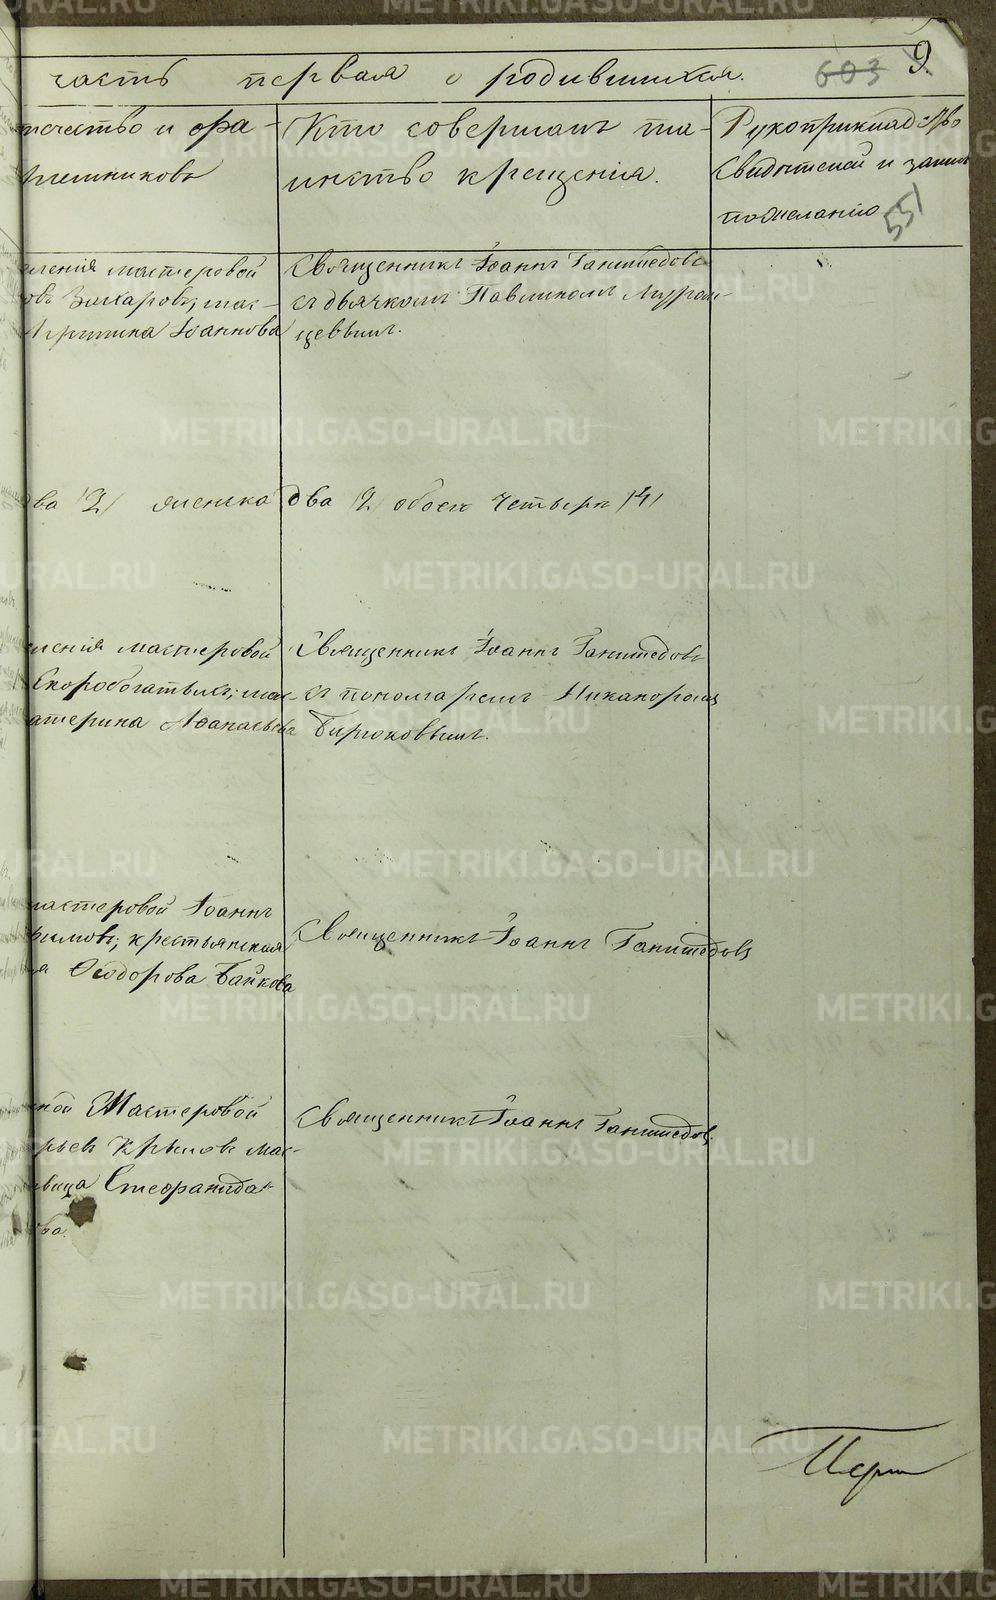 часть первая о родившихся. 603 9.
отчество и фа-
Кто совершалъ та-
инство крещенія.
Рукоприкладство
свидѣтелей и запись
по желанію
551
мастеровой
Захаровъ, мат-
Іоаннова
Священникъ Іоаннъ Ганимедовъ
съ дьячкомъ Павлиномъ
ва /2/ женска два /2/ обоего четыре /4/
ленія мастеровой
Скоробогатыхъ, ма-
атерина Аѳанасьева
Священникъ Іоаннъ Ганимедовъ
съ пономаремъ Никаноромъ
Бирюковымъ.
мастеровой Іоаннъ
имовъ, крестьянская
Ѳеодорова Байкова
Священникъ Іоаннъ Ганимедовъ
ной Мастеровой
рьевъ Крыловъ мас-
вица Стефанида
ва.
Священникъ Іоаннъ Ганимедовъ
METRIKI.GASO-URAL.RU